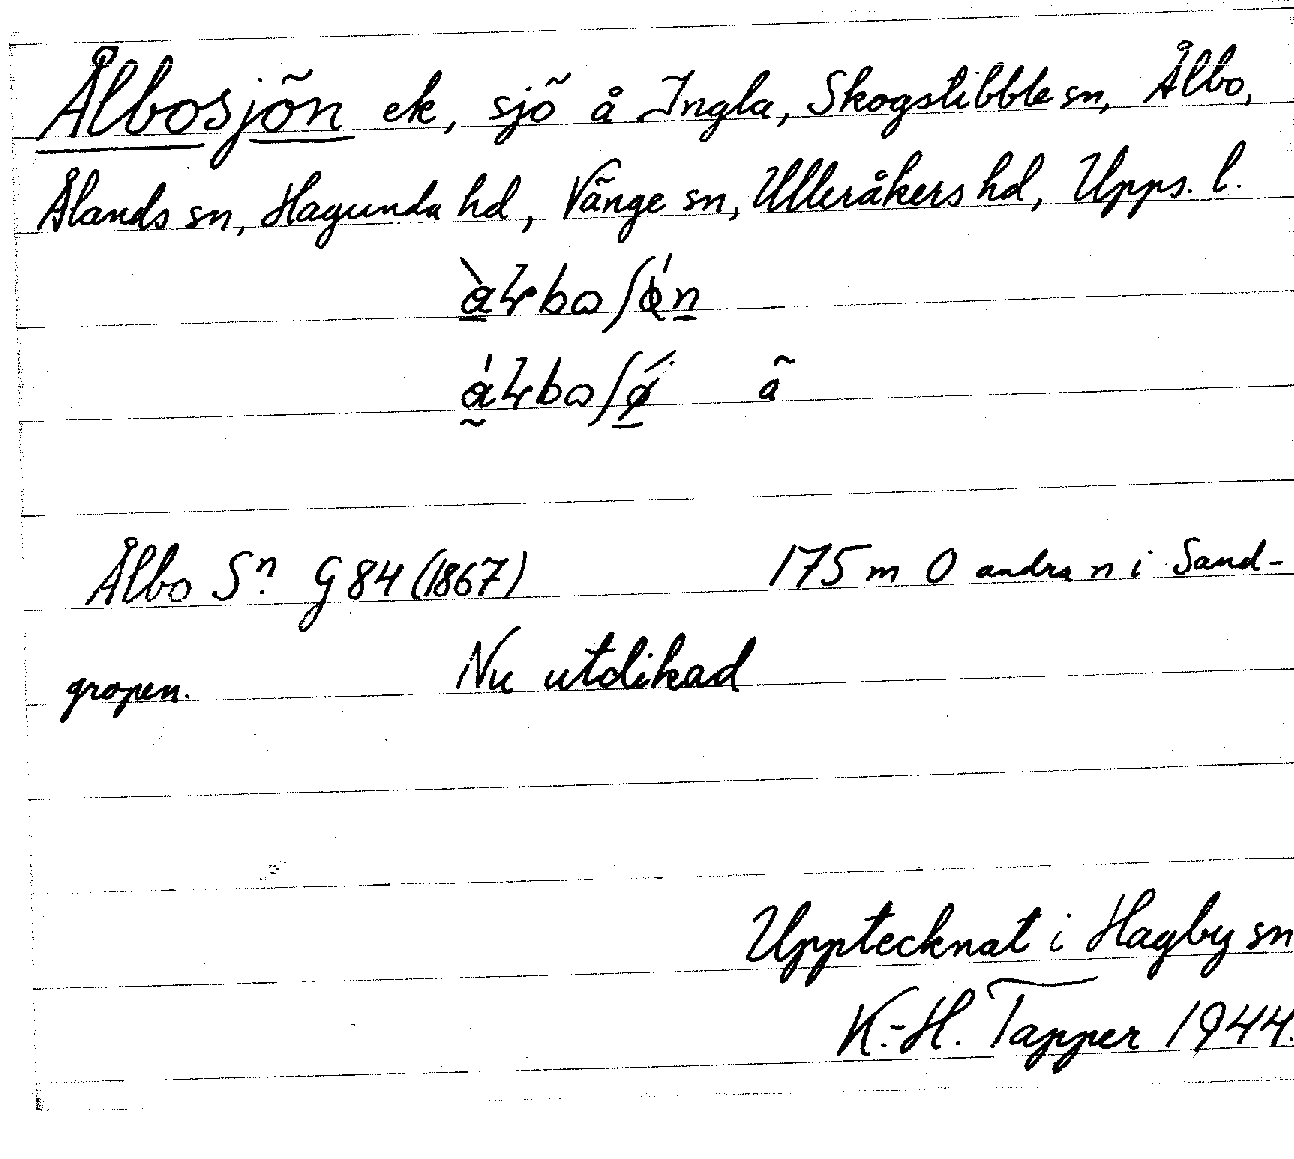 Ålbosjön ek, sjö å Ingla, Skogstibble sn, Ålbo,
Ålands sn, Hagunda hd, Vänge sn, Ulleråkers hd, Upps. l.
Ålbo Sⁿ. G 84 (1867) 175 m O andra n i Sand-
gropen. Nu utdikad
Upptecknat i Hagby sn
K.-H. Tapper 1944.